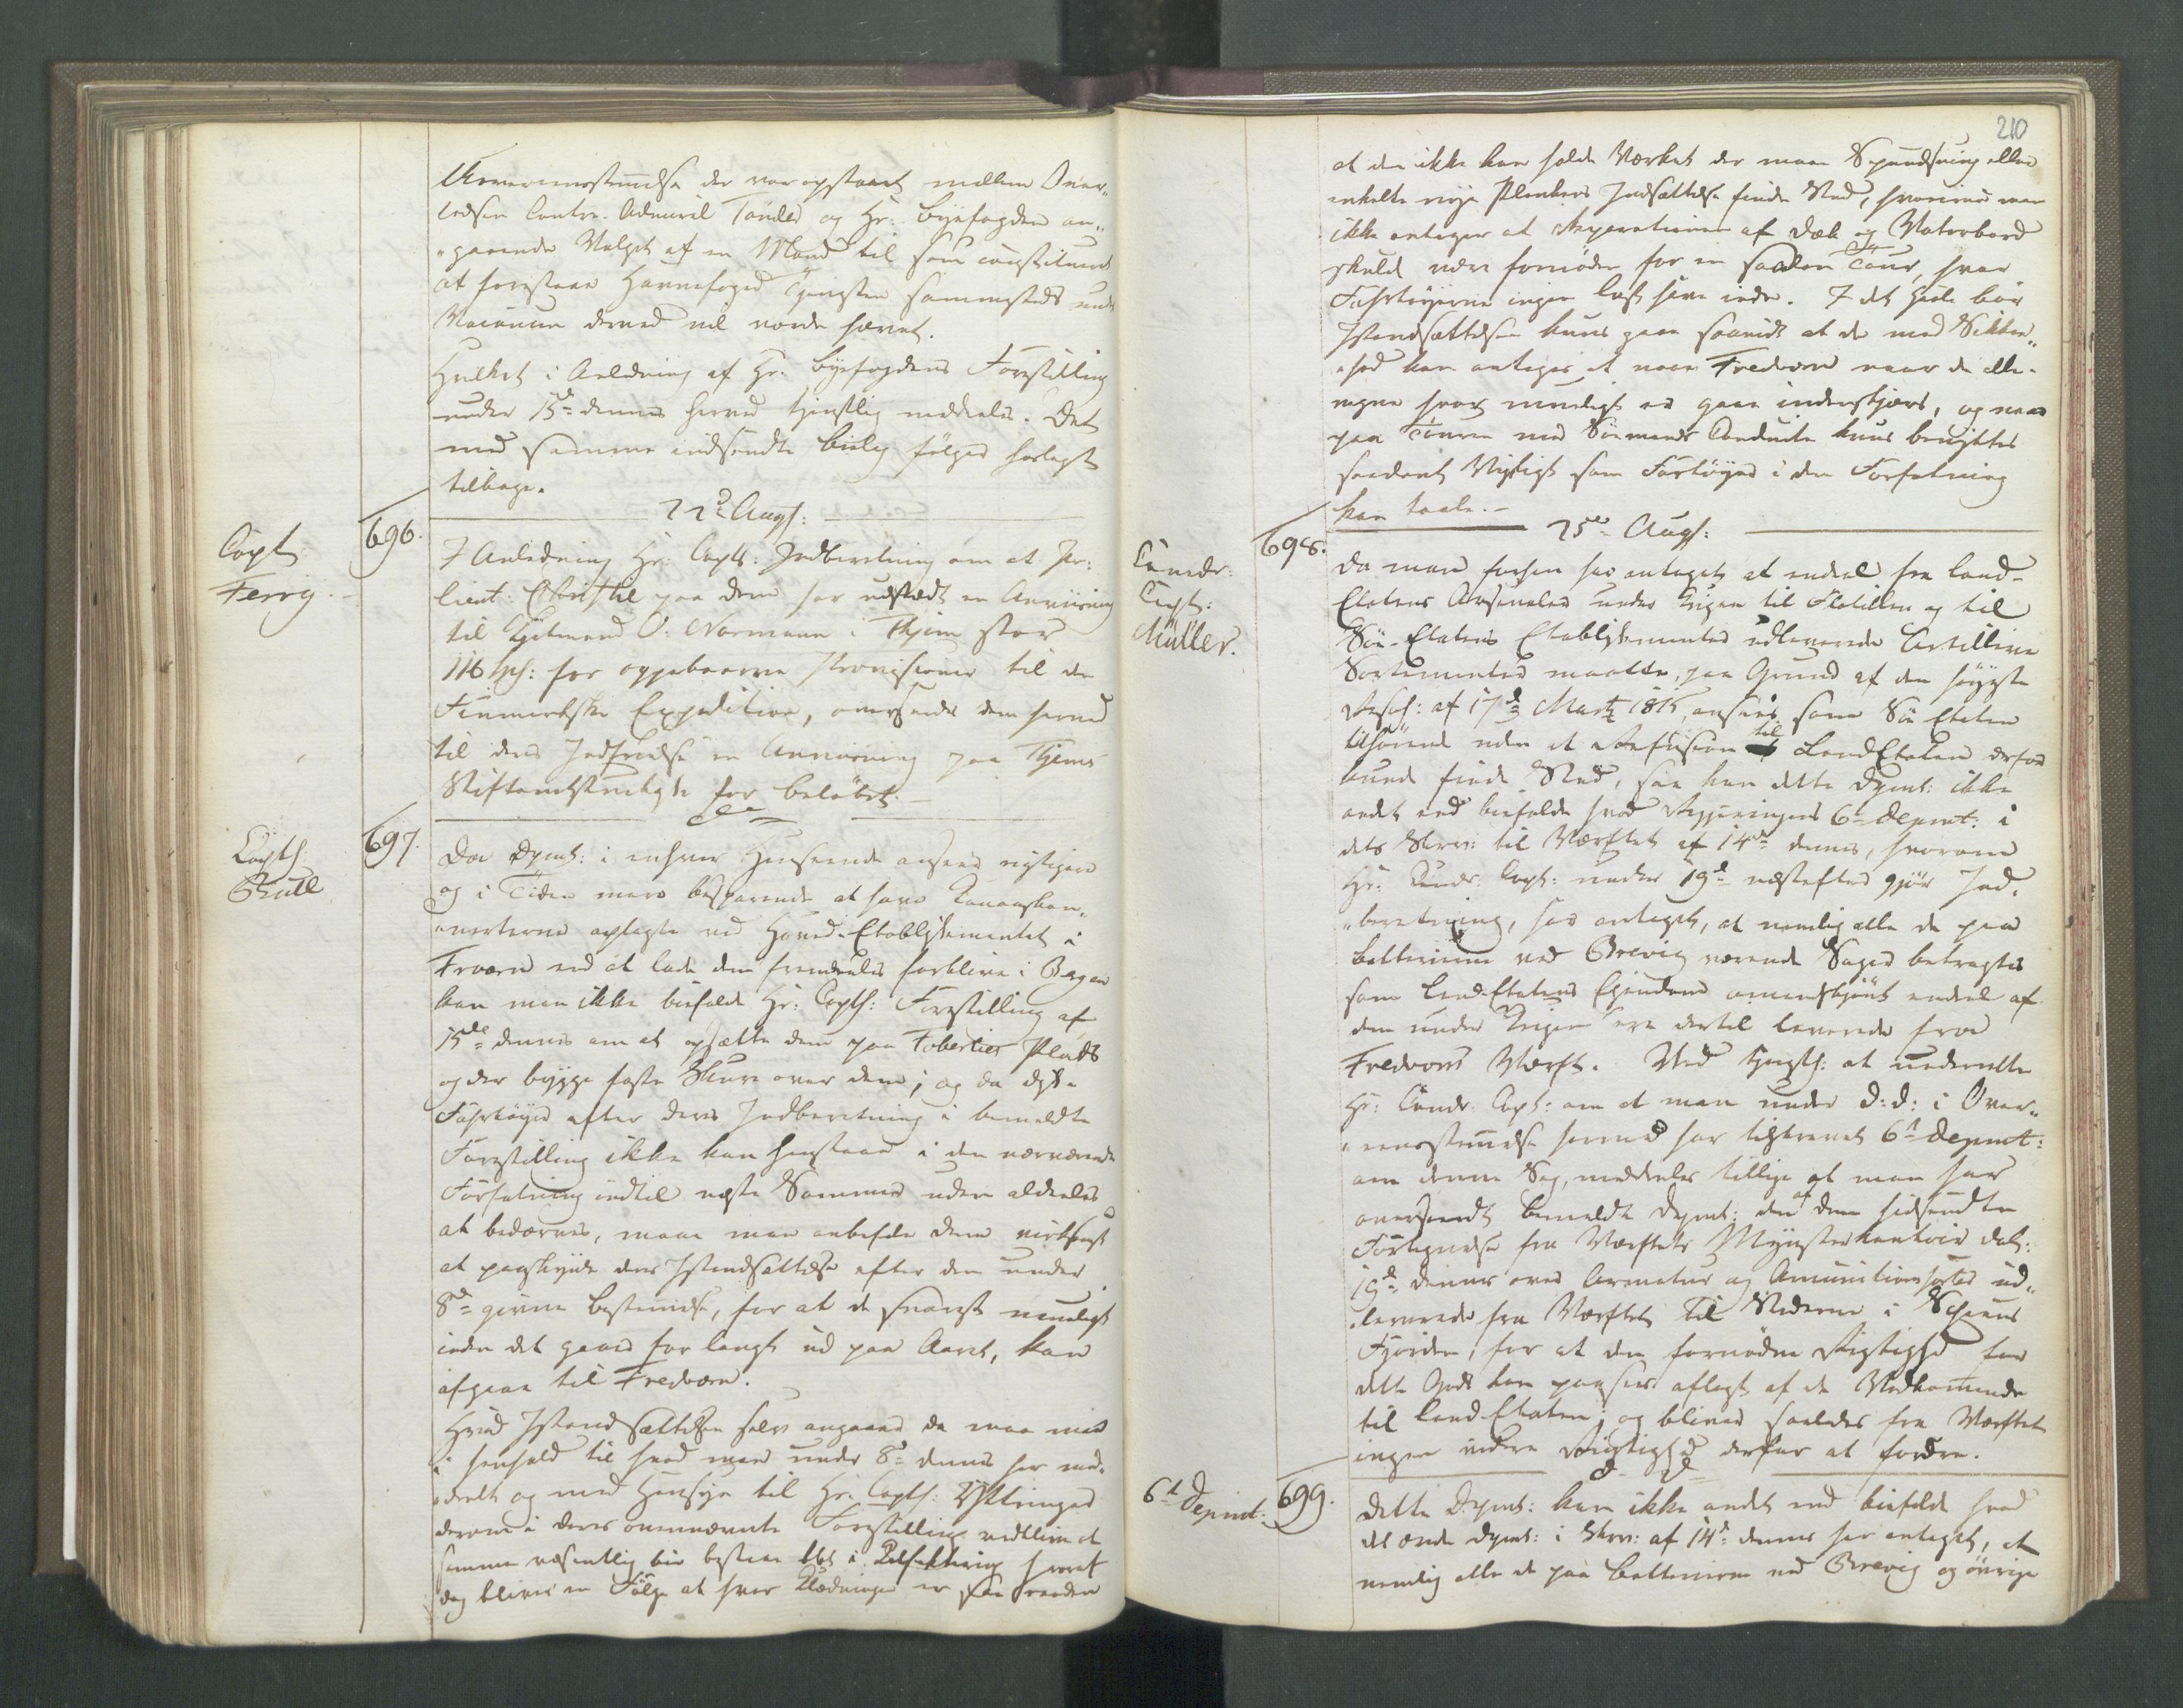 Uoverensstemmelse der var opstaaet mellem Over„
lodsen Contre-Admiral Tönder og Hr: Byefogden an„
„gaaende Valget af en Mand til som constitueret
at forestaae Havnefoged Tjenesten sammesteds under
Vacancen derved vil vorde hævet.
Hvilket i Anledning af Hr: Byefogdens Forestilling
under 15d dennes herved tjenstlig meddeles. Det
med samme indsendte Bielag følger hoslagt
tilbage.
22d Augt:
Capt.
Ferry.
696.
I Anledning Hr: Capts: Indberetning om at Pr:
lieut: Christie paa dem har udstædt en Anviisning
til Kjøbmand O: Normann i Thjem stor
116 Sp: for oppebaarne Provisioner til den
Finmarkske Expedition, oversendes dem herved
til dens Indfrielse en Anviisning paa Thjems
Stiftamtstue for Beløbet.
Capt:
Grull
697.
Da Dpmt: i enhver Henseende anseer rigtigere
og i Tiden mere besparende at have Kanonskon„
„nerterne oplagte ved Hoved-Etablissementet i
Frværn end at lade dem fremdeles forblive i Bergen
kan man ikke bifalde Hr: Capts: Forestilling af
15de dennes om at opsætte dem paa Plads
og der bygge faste Skure over dem; og da disse
Fahrtøyer efter deres Indberetning i bemeldte
Forestilling ikke kan henstaae i den nærværende
Forfatning indtil næste Sommer uden aldeles
at bedærves, maae man anbefale dem virksomst
at paaskynde deres Istandsættelse efter den under
8d givne Bestemmelse, for at de snarest mueligt
inden det gaaer for langt ud paa Aaret, kan
afgaae til Fredværn.
Hvad Istandsættelsen selv angaaer da maa man
i henhold til hvad man under 8d dennes har med„
„deelt og med Hensyn til Hr: Capts: Yttringer
derom i deres ovennævnte Forestilling vedblive at
samme væsentlig bør bestaae blot i Kalfatring hvoraf
dog bliver en Følge at hvor Klædningen er saa raaden
210
at den ikke kan holde Værket der maae Spundsning eller
enkelte nye Plankers Indsættelse finde Sted, hvorimod man
ikke antager at Reparationen af Dæk og Vaterbord
skuld være fornøden for en saadan Tour, hvor
Fahrtøyerne ingen Last have inde. I det Hele bør
Istandsættelsen kuns gaae saavidt at de med Sikker„
„hed kan antages at naae Fredværn naar de alle„
„vegne hvor mueligt er gaae indenskjærs, og naar
paa Touren med Sömands Conduite kuns benyttes
saadant Veirligt som Fartøyer i den Forfatning
kan taale.
25de Augt:
Comdr:
Capt:
Müller.
698.
Da man forhen har antaget at endeel fra Land-
Etatens Arsenaler under Krigen til Flotillen og til
Söe-Etatens Etablissementer udleverede Artillerie
Sortementer maatte, paa Grund af den høyeste
Resol: af 17de Martz 1815, ansees som Söe Etaten
tilhørende uden at Refusion til LandEtaten derfor
kunde finde Sted, saa kan dette Dpmt: ikke
andet end bifalde hvad Regjeringens 6te Depmt: i
dets Skriv: til Værftet af 14de dennes, hvorom
Hr: Comdr: Capt: under 19d næstefter gjör Ind„
„beretning, har antaget, at nemlig alle de paa
Batterierne ved Brevig værende Sager betragtes
som Land-Etatens Eiendom omendskjønt endeel af
dem under Krigen ere dertil leverede fra
Fredværns Værft. Ved tjenstl: at underrette
Hr: Comdr: Capt: om at man under D: D: i Over„
„eensstemmelse hermed har tilskrevet 6te Depmt:
om denne Sag, meddeles tillige at man har
oversendt bemeldte Dpmt: den af dem hidsendte
Fortegnelse fra Værftets Mynsterkontoir dat:
19d dennes over Armatur og Amunitionssorter ud„
„leverede fra Værftet til Stederne i Schiens
Fjorden, for at den fornødne Rigtighed for
dette Gods kan paasees aflagt af de Vedkommende
til Land-Etaten; og bliver saaledes fra Værftet
ingen videre Rigtighed derfor at fordre.
D. D.
6te Depmt:
699.
Dette Dpmt: kan ikke andet end bifalde hvad
det ærede Dpmt: i Skriv: af 14d dennes har antaget, at
nemlig alle de paa Batterierne ved Brevig og øvrige